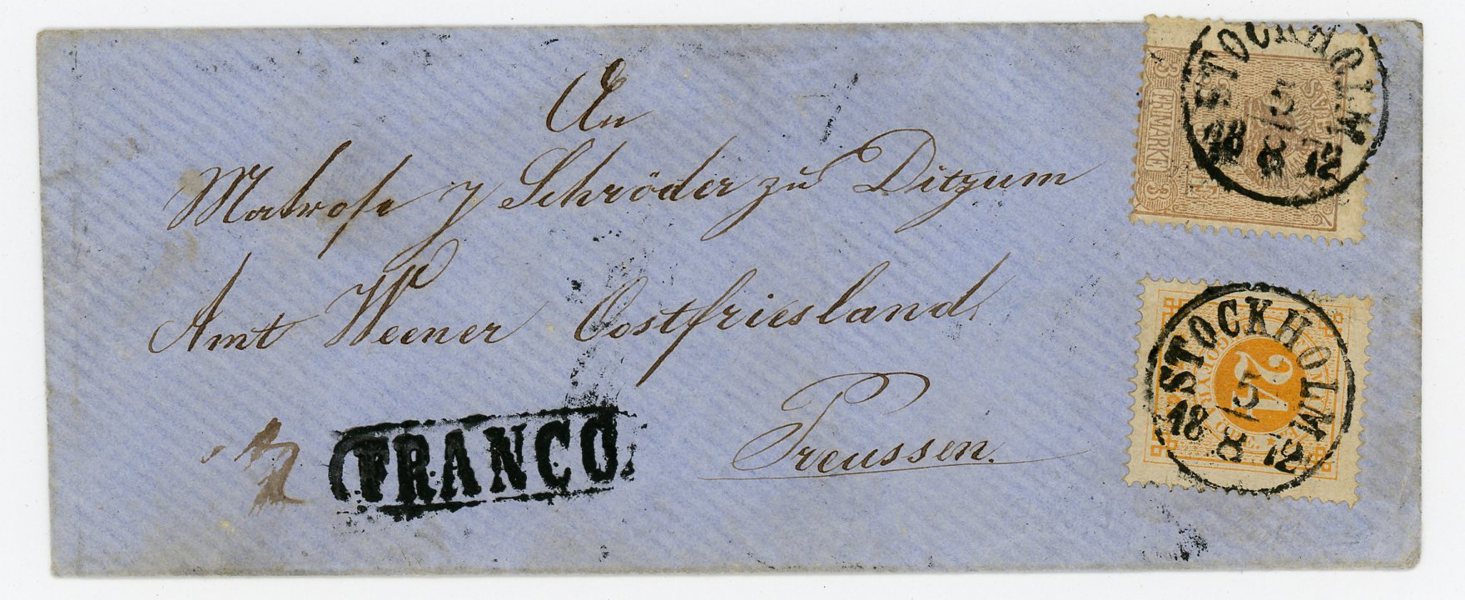 An
Matrose J Schröder zu Ditzum
Amt Weener Oostfriesland
Preussen.
FRANCO
STOCKHOLM
5
18 8 72
3 3
STOCKHOLM
24
5
18 8 72